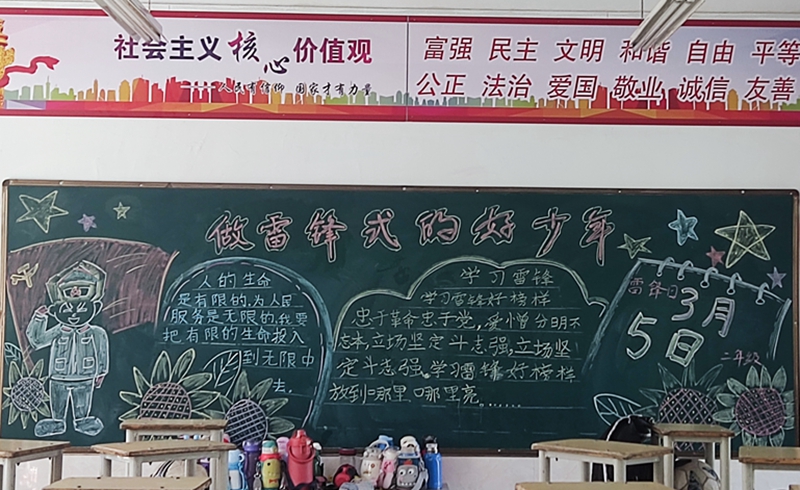 社会主义核心价值观
——人民有信仰 国家才有力量
富强 民主 文明 和谐 自由 平等
公正 法治 爱国 敬业 诚信 友善
做雷锋式的好少年
人的生命
是有限的,为人民
服务是无限的,我要
把有限的生命投入
到无限中
去。
学习雷锋
学习雷锋好榜样
忠于革命忠于党,爱憎分明不
忘本,立场坚定斗志强,立场坚
定斗志强。学习雷锋好榜样
放到哪里哪里亮
雷锋日
3月
5日
二年级